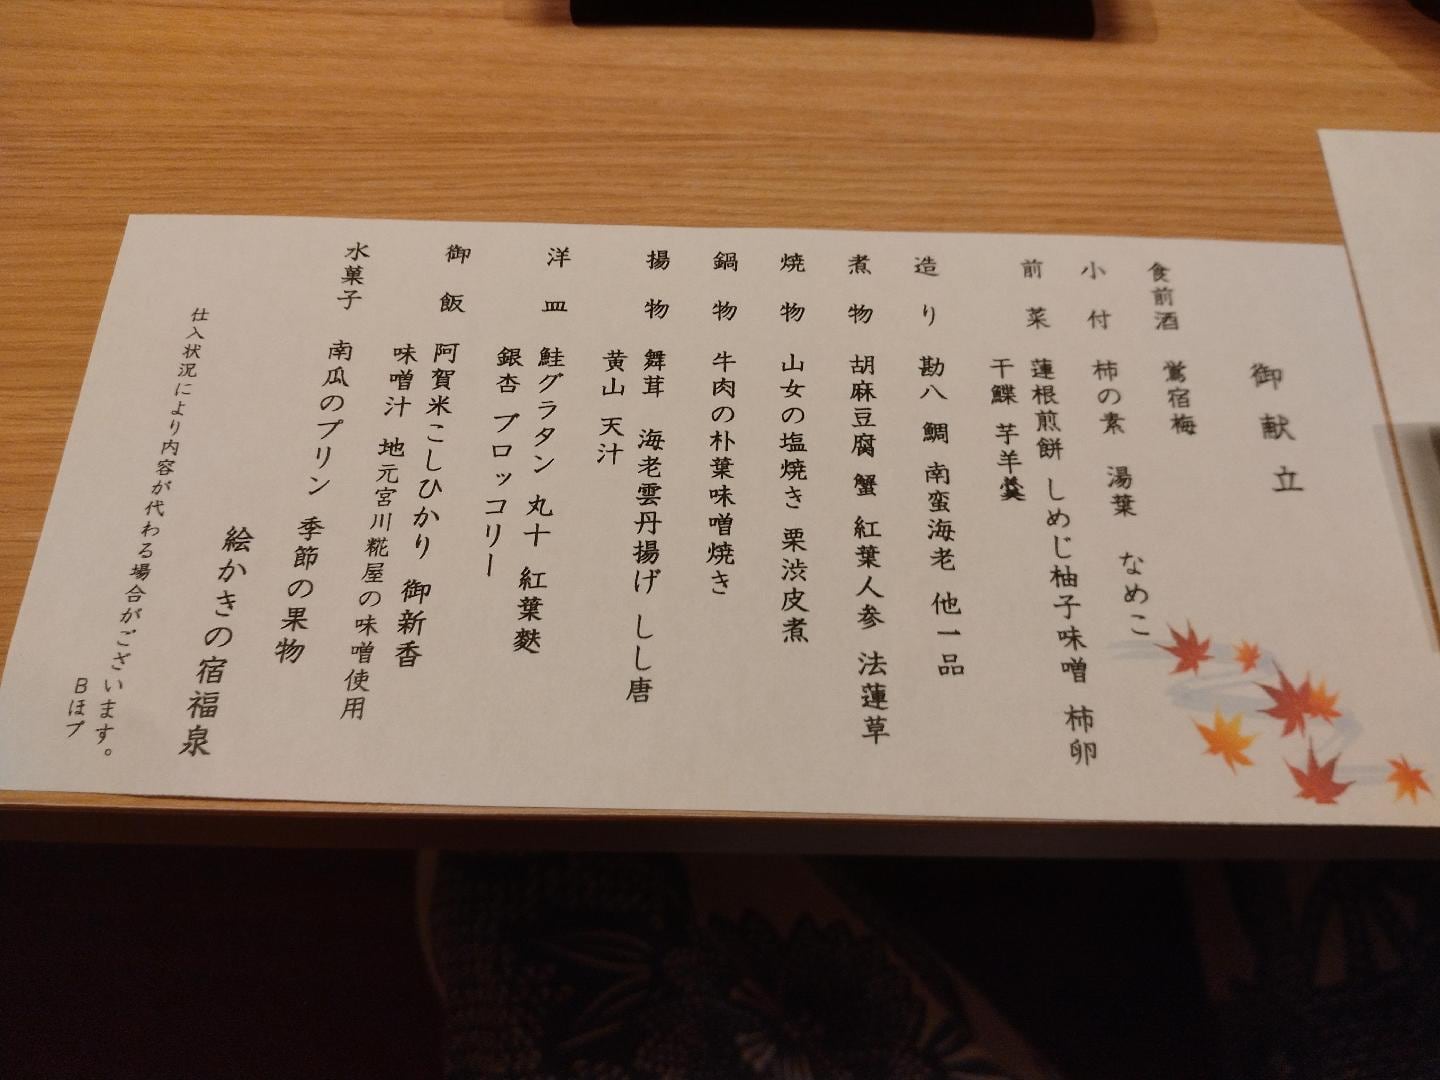 御献立
食前酒 鶯宿梅
小付 柿の素 湯葉 なめこ
前菜 蓮根煎餅 しめじ柚子味噌 柿卵
干鰈 芋羊羹
造り 勘八 鯛 南蛮海老 他一品
煮物 胡麻豆腐 蟹 紅葉人参 法蓮草
焼物 山女の塩焼き 栗渋皮煮
鍋物 牛肉の朴葉味噌焼き
揚物 舞茸 海老雲丹揚げ しし唐
黄山 天汁
洋皿 鮭グラタン 丸十 紅葉麩
銀杏 ブロッコリー
御飯 阿賀米こしひかり 御新香
味噌汁 地元宮川糀屋の味噌使用
水菓子 南瓜のプリン 季節の果物
絵かきの宿福泉
仕入状況により内容が代わる場合がございます。
Bほプ